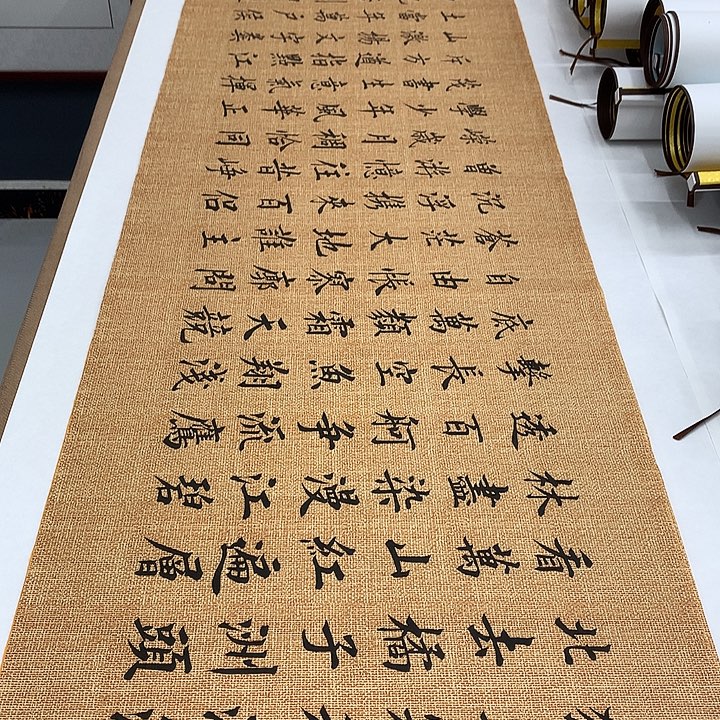 北去橘子洲頭
看萬山紅遍層
林盡染漫江碧
透百舸争流鷹
擊長空魚翔淺
底萬類霜天競
自由悵寥廓問
蒼茫大地誰主
沉浮携來百侣
曾游憶往昔崢
嶸歲月稠恰同
學少年風華正
茂書生意氣揮
斥方遒指點江
山激揚文字糞
土當年萬户侯